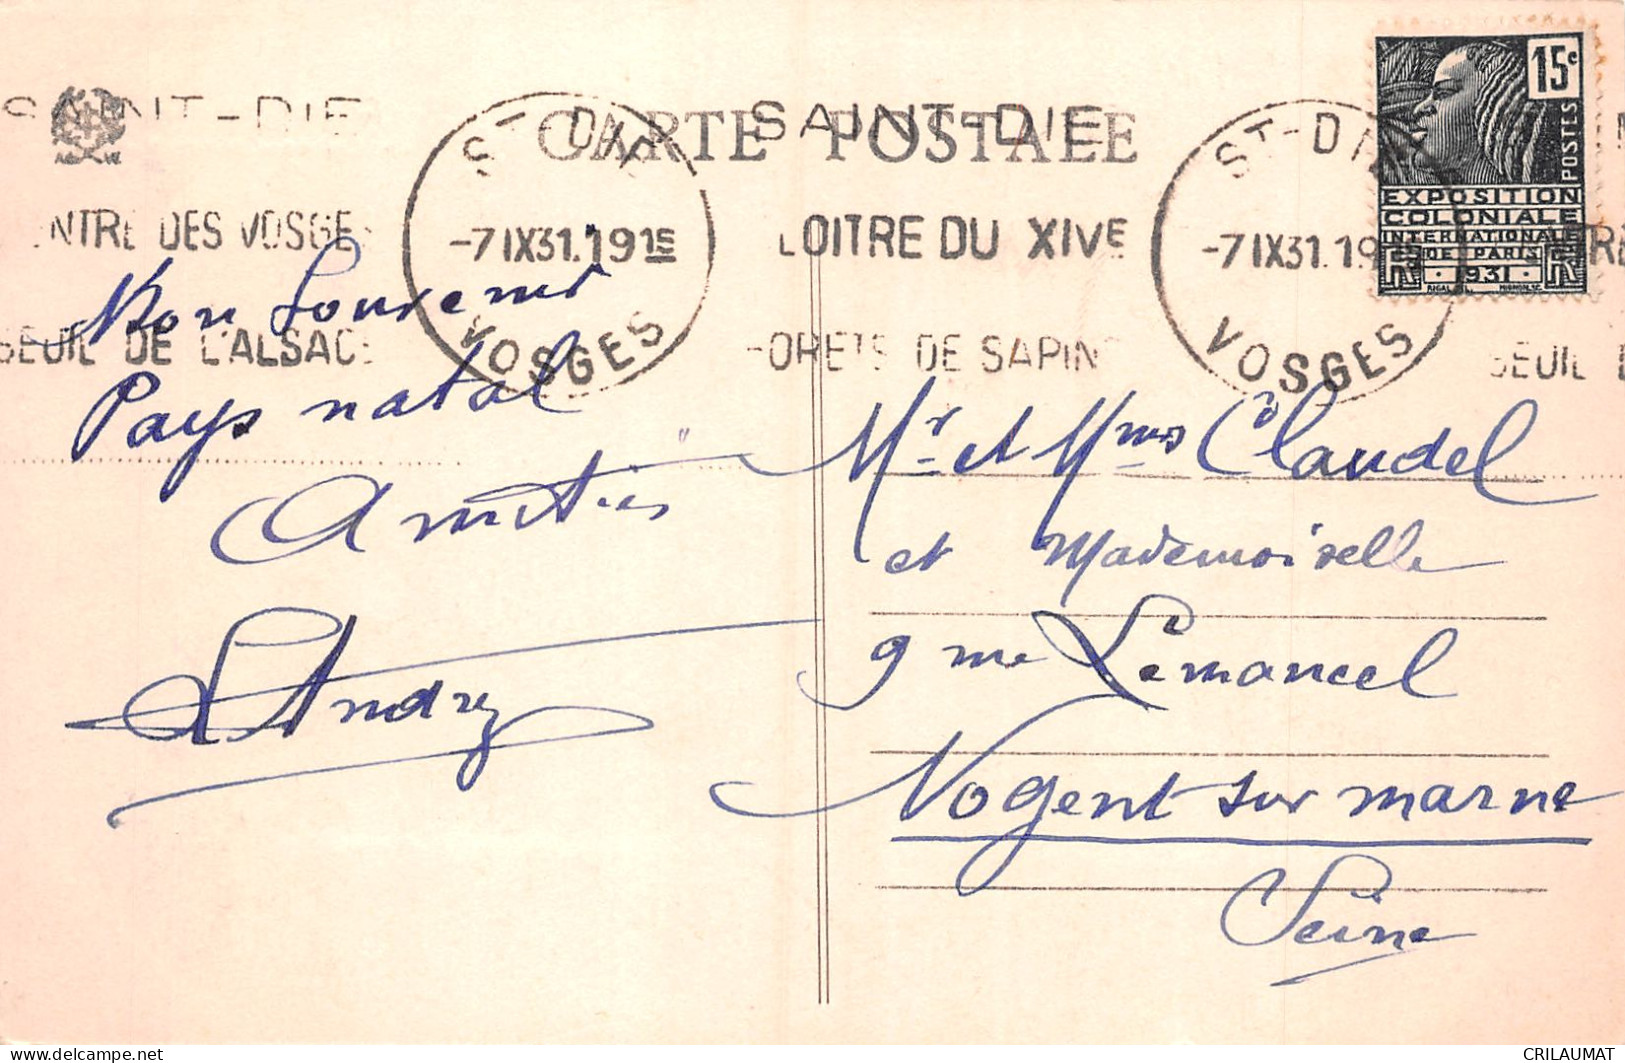 CARTE POSTALE
SAINT-DIE
CENTRE DES VOSGES
SEUIL DE L'ALSACE
ST-DIE
-7 IX 31. 19 15
VOSGES
SAINT-DIE
CLOITRE DU XIVE
FORETS DE SAPINS
ST-DIE
-7 IX 31. 19
VOSGES
SEUIL
15c
POSTES
EXPOSITION
COLONIALE
INTERNATIONALE
DE PARIS
1931
Bon Souvenir
Pays natal
Amitiés
André
Mr et Mme Claudel
et Mademoiselle
9 rue Lemancel
Nogent sur marne
Seine
CRILAUMAT